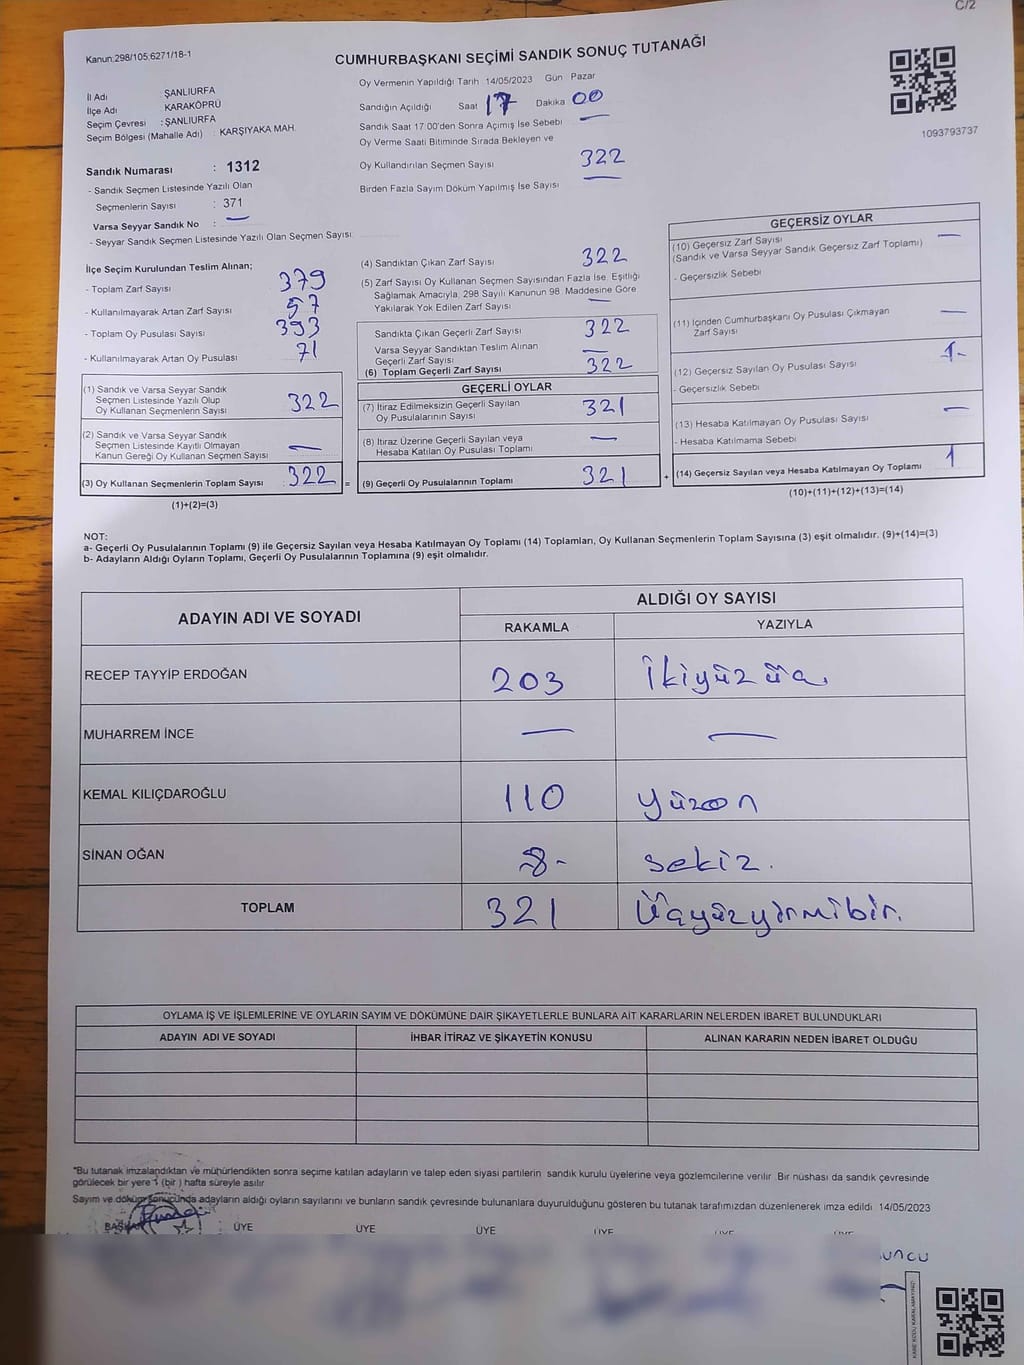 C/2
Kanun:298/105:6271/18-1
CUMHURBAŞKANI SEÇİMİ SANDIK SONUÇ TUTANAĞI
İl Adı : ŞANLIURFA
İlçe Adı KARAKÖPRÜ
Seçim Çevresi : ŞANLIURFA
Seçim Bölgesi (Mahalle Adı) : KARŞIYAKA MAH.
Oy Vermenin Yapıldığı Tarih 14/05/2023 Gün Pazar
Sandığın Açıldığı Saat 17 Dakika 00
Sandık Saat 17:00'den Sonra Açımış İse Sebebi —
Oy Verme Saati Bitiminde Sırada Bekleyen ve
Oy Kullandırılan Seçmen Sayısı 322
Birden Fazla Sayım Döküm Yapılmış İse Sayısı —
1093793737
Sandık Numarası : 1312
- Sandık Seçmen Listesinde Yazılı Olan
Seçmenlerin Sayısı : 371
Varsa Seyyar Sandık No : —
- Seyyar Sandık Seçmen Listesinde Yazılı Olan Seçmen Sayısı:
İlçe Seçim Kurulundan Teslim Alınan;
- Toplam Zarf Sayısı 379
- Kullanılmayarak Artan Zarf Sayısı 57
- Toplam Oy Pusulası Sayısı 393
- Kullanılmayarak Artan Oy Pusulası 71
(1) Sandık ve Varsa Seyyar Sandık
Seçmen Listesinde Yazılı Olup
Oy Kullanan Seçmenlerin Sayısı 322
(2) Sandık ve Varsa Seyyar Sandık
Seçmen Listesinde Kayıtlı Olmayan
Kanun Gereği Oy Kullanan Seçmen Sayısı —
(3) Oy Kullanan Seçmenlerin Toplam Sayısı : 322 =
(1)+(2)=(3)
(4) Sandıktan Çıkan Zarf Sayısı 322
(5) Zarf Sayısı Oy Kullanan Seçmen Sayısından Fazla İse, Eşitliği
Sağlamak Amacıyla, 298 Sayılı Kanunun 98. Maddesine Göre
Yakılarak Yok Edilen Zarf Sayısı —
Sandıkta Çıkan Geçerli Zarf Sayısı 322
Varsa Seyyar Sandıktan Teslim Alınan
Geçerli Zarf Sayısı —
(6) Toplam Geçerli Zarf Sayısı 322
GEÇERLİ OYLAR
(7) İtiraz Edilmeksizin Geçerli Sayılan
Oy Pusulalarının Sayısı 321
(8) İtiraz Üzerine Geçerli Sayılan veya
Hesaba Katılan Oy Pusulası Toplamı —
(9) Geçerli Oy Pusulalarının Toplamı 321 +
GEÇERSİZ OYLAR
(10) Geçersiz Zarf Sayısı —
(Sandık ve Varsa Seyyar Sandık Geçersiz Zarf Toplamı)
- Geçersizlik Sebebi
(11) İçinden Cumhurbaşkanı Oy Pusulası Çıkmayan
Zarf Sayısı —
(12) Geçersiz Sayılan Oy Pusulası Sayısı 1-
- Geçersizlik Sebebi
(13) Hesaba Katılmayan Oy Pusulası Sayısı —
- Hesaba Katılmama Sebebi
(14) Geçersiz Sayılan veya Hesaba Katılmayan Oy Toplamı 1
(10)+(11)+(12)+(13)=(14)
NOT:
a- Geçerli Oy Pusulalarının Toplamı (9) ile Geçersiz Sayılan veya Hesaba Katılmayan Oy Toplamı (14) Toplamları, Oy Kullanan Seçmenlerin Toplam Sayısına (3) eşit olmalıdır. (9)+(14)=(3)
b- Adayların Aldığı Oyların Toplamı, Geçerli Oy Pusulalarının Toplamına (9) eşit olmalıdır.
ADAYIN ADI VE SOYADI ALDIĞI OY SAYISI
RAKAMLA YAZIYLA
RECEP TAYYİP ERDOĞAN 203 İkiyüzüç.
MUHARREM İNCE — —
KEMAL KILIÇDAROĞLU 110 yüzon
SİNAN OĞAN 8- sekiz.
TOPLAM 321 Üçyüzyirmibir.
OYLAMA İŞ VE İŞLEMLERİNE VE OYLARIN SAYIM VE DÖKÜMÜNE DAİR ŞİKAYETLERLE BUNLARA AİT KARARLARIN NELERDEN İBARET BULUNDUKLARI
ADAYIN ADI VE SOYADI İHBAR İTİRAZ VE ŞİKAYETİN KONUSU ALINAN KARARIN NEDEN İBARET OLDUĞU
*Bu tutanak imzalandıktan ve mühürlendikten sonra seçime katılan adayların ve talep eden siyasi partilerin sandık kurulu üyelerine veya gözlemcilerine verilir. Bir nüshası da sandık çevresinde
görülecek bir yere 1 (bir ) hafta süreyle asılır
Sayım ve döküm sonucunda adayların aldığı oyların sayılarını ve bunların sandık çevresinde bulunanlara duyurulduğunu gösteren bu tutanak tarafımızdan düzenlenerek imza edildi 14/05/2023
BAŞKAN ÜYE ÜYE ÜYE ÜYE ÜYE ÜYE